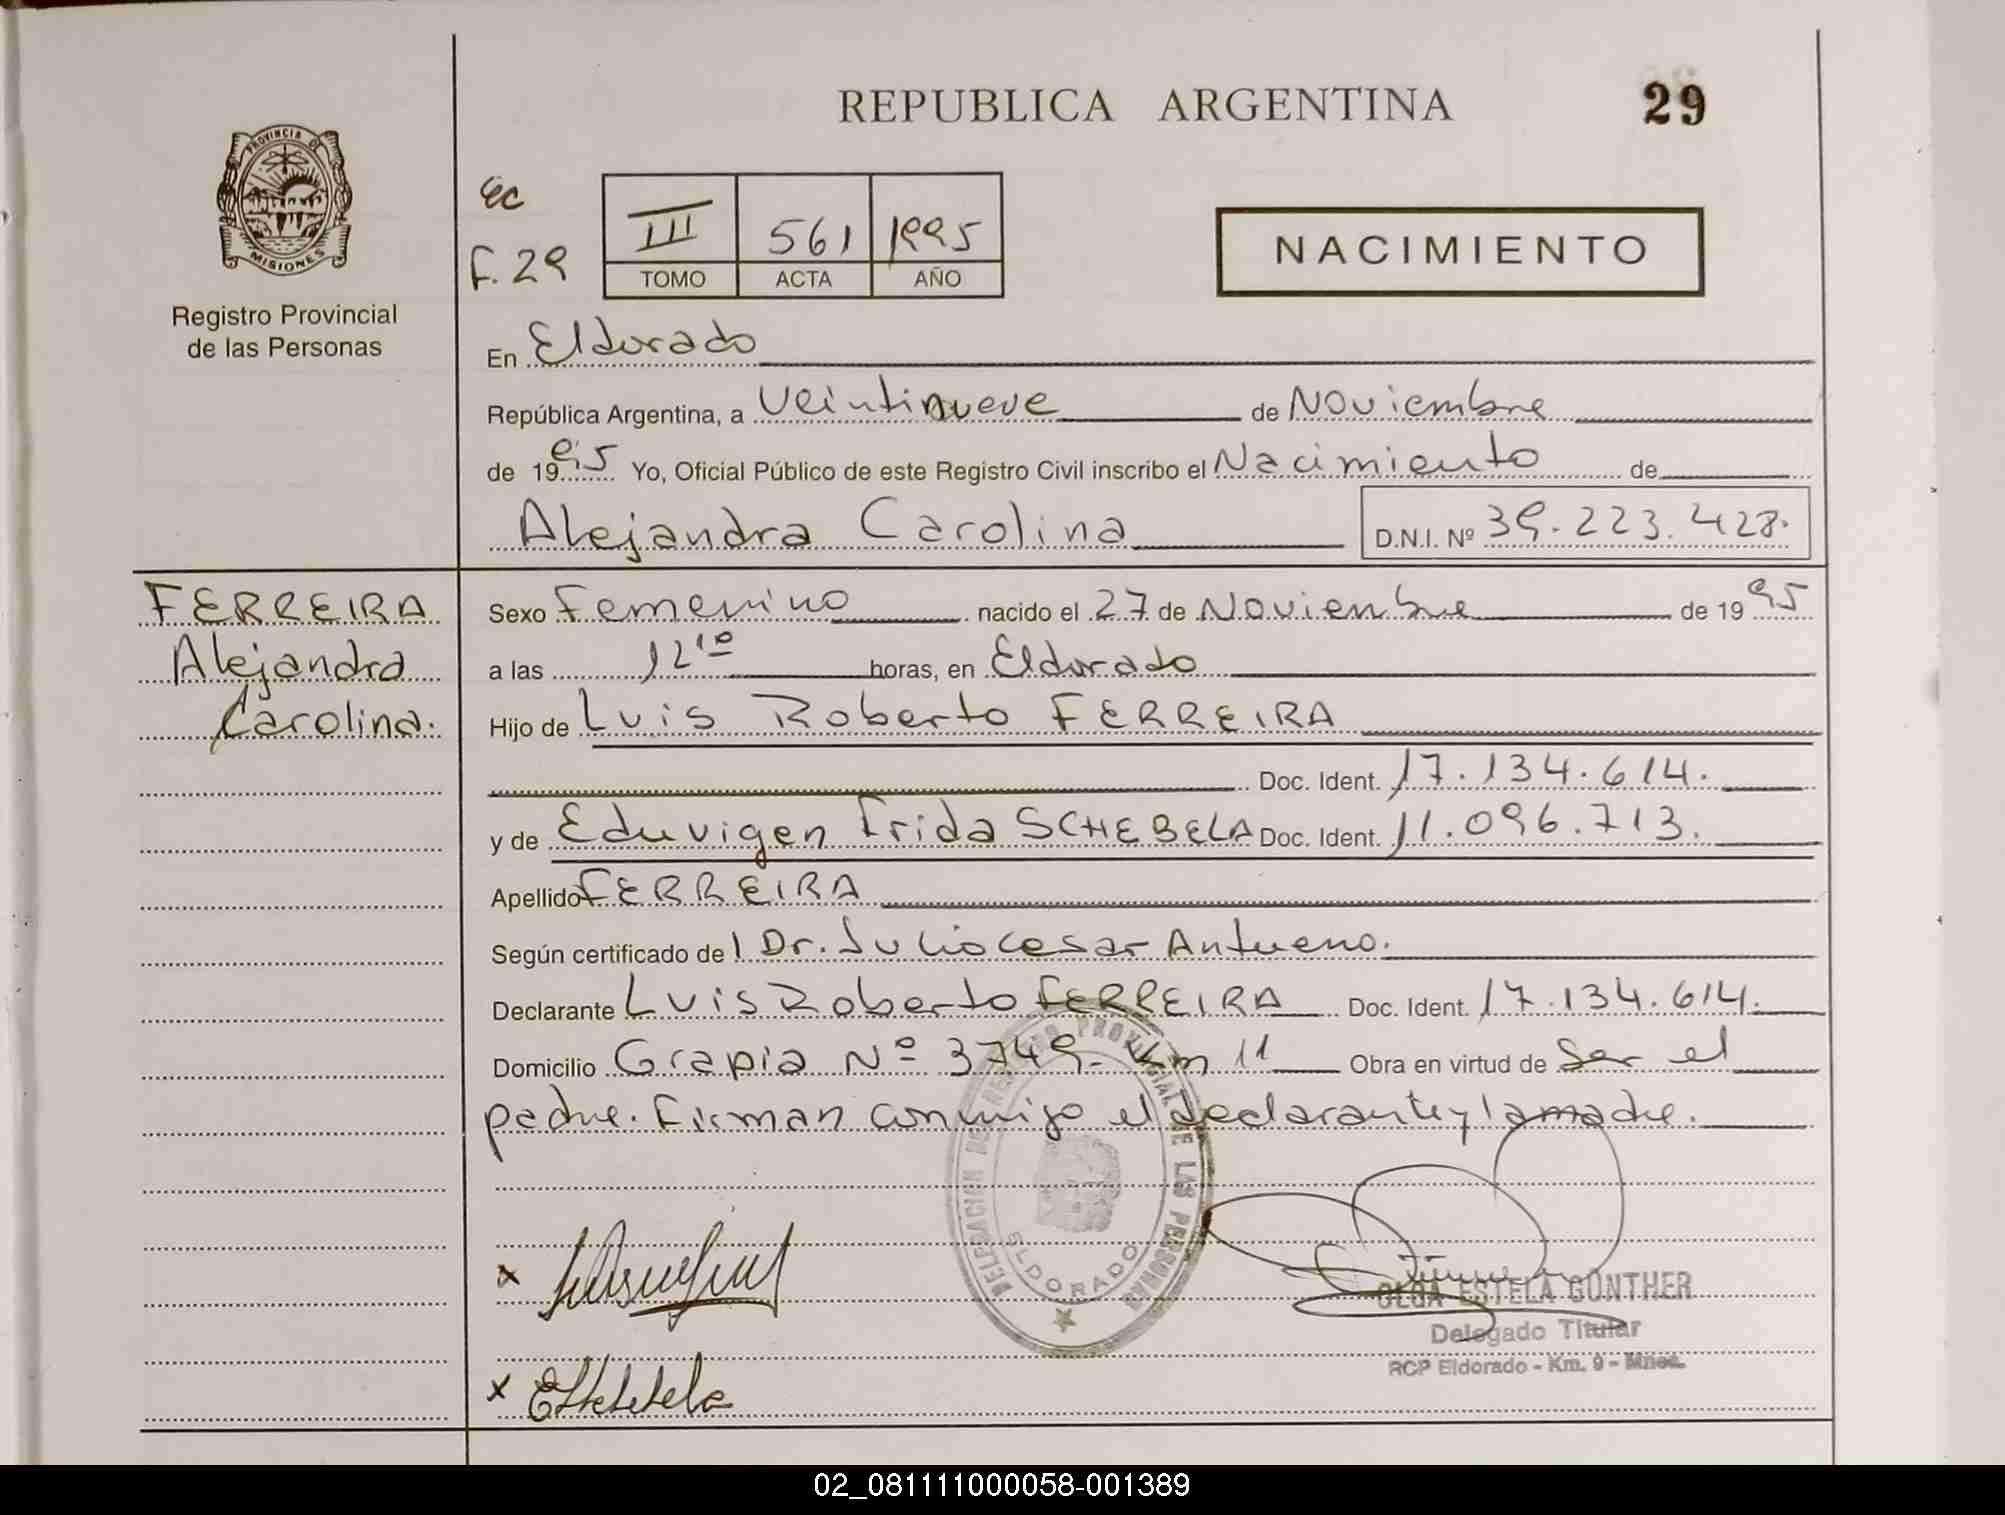 REPUBLICA ARGENTINA
29
PROVINCIA DE
MISIONES
Registro Provincial
de las Personas
F. 29
III 561 1995
TOMO ACTA AÑO
NACIMIENTO
En Eldorado
República Argentina, a Veintinueve de Noviembre
de 1995 Yo, Oficial Público de este Registro Civil inscribo el Nacimiento de
Alejandra Carolina D.N.I. Nº 39.223.428.
FERREIRA
Alejandra
Carolina.
Sexo Femenino nacido el 27 de Noviembre de 1995
a las 12 10 horas, en Eldorado
Hijo de Luis Roberto FERREIRA
Doc. Ident. 17.134.614.
y de Eduvigen Frida SCHEBELA Doc. Ident. 11.096.713.
Apellido FERREIRA
Según certificado de l Dr. Julio Cesar Antueno.
Declarante Luis Roberto FERREIRA Doc. Ident. 17.134.614.
Domicilio Grapia Nº 3749- Km 11 Obra en virtud de Ser el
padre. Firman conmigo el declarante y la madre.
DELEGACION DEL REGISTRO PROVINCIAL DE LAS PERSONAS
ELDORADO
x
OLGA ESTELA GUNTHER
Delegado Titular
RCP Eldorado - Km. 9 - Mnes.
x
02_081111000058-001389